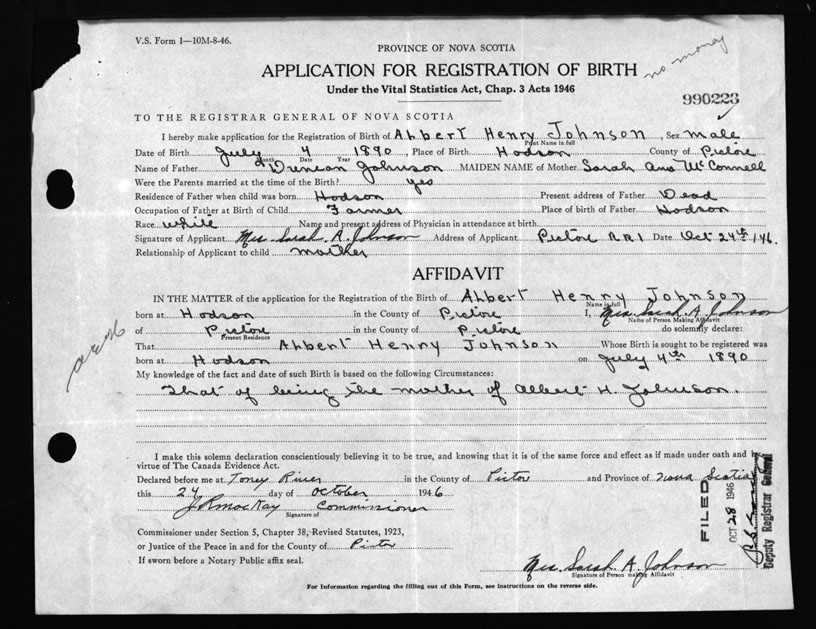 V.S. Form 1—10M-8-46.
PROVINCE OF NOVA SCOTIA
no money
APPLICATION FOR REGISTRATION OF BIRTH
Under the Vital Statistics Act, Chap. 3 Acts 1946
990223
TO THE REGISTRAR GENERAL OF NOVA SCOTIA
I hereby make application for the Registration of Birth of Albert Henry Johnson, Sex male
Print Name in full
Date of Birth July 4 1890, Place of Birth Hodson County of Pictou
Month Date Year
Name of Father Duncan Johnson MAIDEN NAME of Mother Sarah Ann McConnell
Were the Parents married at the time of the Birth? yes
Residence of Father when child was born Hodson Present address of Father Dead
Occupation of Father at Birth of Child Farmer Place of birth of Father Hodson
Race white Name and present address of Physician in attendance at birth
Signature of Applicant Mrs. Sarah A. Johnson Address of Applicant Pictou RR1 Date Oct 24th/46.
Relationship of Applicant to child mother
AFFIDAVIT
IN THE MATTER of the application for the Registration of the Birth of Albert Henry Johnson
Name in full
born at Hodson in the County of Pictou I, Mrs. Sarah A. Johnson
Name of Person Making Affidavit
of Pictou in the County of Pictou do solemnly declare:
Present Residence
That Albert Henry Johnson Whose Birth is sought to be registered was
born at Hodson on July 4th 1890
My knowledge of the fact and date of such Birth is based on the following Circumstances:
That of being the mother of Albert H. Johnson.
I make this solemn declaration conscientiously believing it to be true, and knowing that it is of the same force and effect as if made under oath and by
virtue of The Canada Evidence Act.
Declared before me at Toney River in the County of Pictou and Province of Nova Scotia
this 24 day of October 1946
J R MacKay Commissioner
Signature of
Commissioner under Section 5, Chapter 38, Revised Statutes, 1923,
or Justice of the Peace in and for the County of Pictou
If sworn before a Notary Public affix seal.
Mrs. Sarah A. Johnson
Signature of Person making Affidavit
For Information regarding the filling out of this Form, see instructions on the reverse side.
FILED
OCT 28 1946
Deputy Registrar General